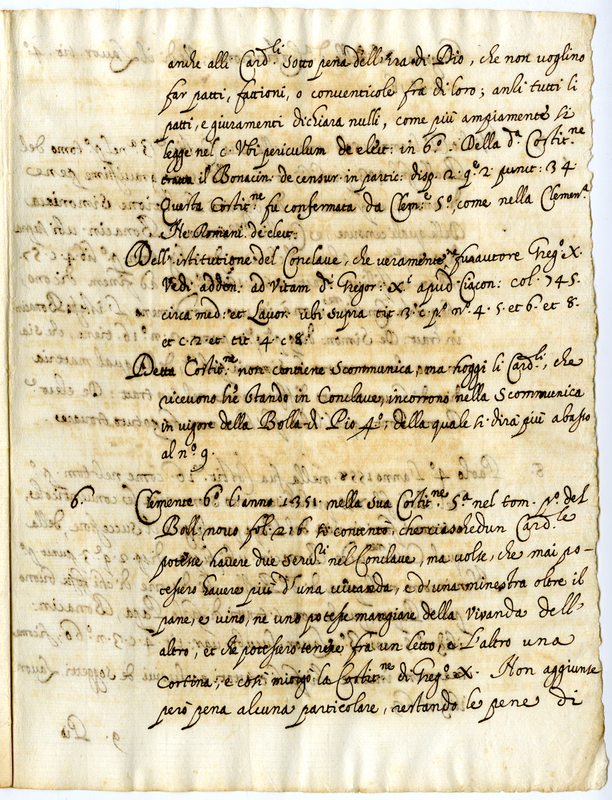 anche alli Card.li sotto pena dell'Ira di Dio, che non voglino
far patti, fattioni, o conventicole fra di loro; anzi tutti li
patti, e giuramenti dichiara nulli, come più ampiamente si
legge nel c. Ubi periculum de elect: in 6.° Della d.a Costit.ne
tratta il Bonacin: de censur: in partic: disp. 2. q.e 2. punct: 34.
Questa Costit.ne fu confermata da Clem.e 5.°, come nella Clemen.a
Ne Romani. de elect:
Dell'istitutione del Conclave, che veramente ne fu autore Greg.o X.
Vedi adden: ad Vitam d.i Gregor: X.i apud Ciacon: col. 745.
circa med: et Lavor. ubi supra tit. 3. c. p.o n.o 4. 5. et 6. et 8.
et c. 2. et tit. 4. c. 8.
Detta Costit.ne non contiene Scommunica, ma hoggi li Card.li, che
ricevono stando in Conclave, incorrono nella Scommunica
in vigore della Bolla di Pio 4.°, della quale si dirà più abasso
al n.o 9.
6. Clemente 6.° l'anno 1351. nella sua Costit.ne 5.a nel tom. p.o del
Boll: novo fol. 216. si contentò che ciaschedun Card.le
potesse havere due serv.ri nel Conclave, ma volse, che mai po-
tessero havere più d'una vivanda, e d'una minestra oltre il
pane, e vino, ne uno potesse mangiare della Vivanda dell'
altro, et che potessero tenere fra un letto, e L'altro una
Cortina, e così mitigò la Costit.ne di Greg.o X. Non aggiunse
però pena alcuna particolare, restando le pene di
9. Pio